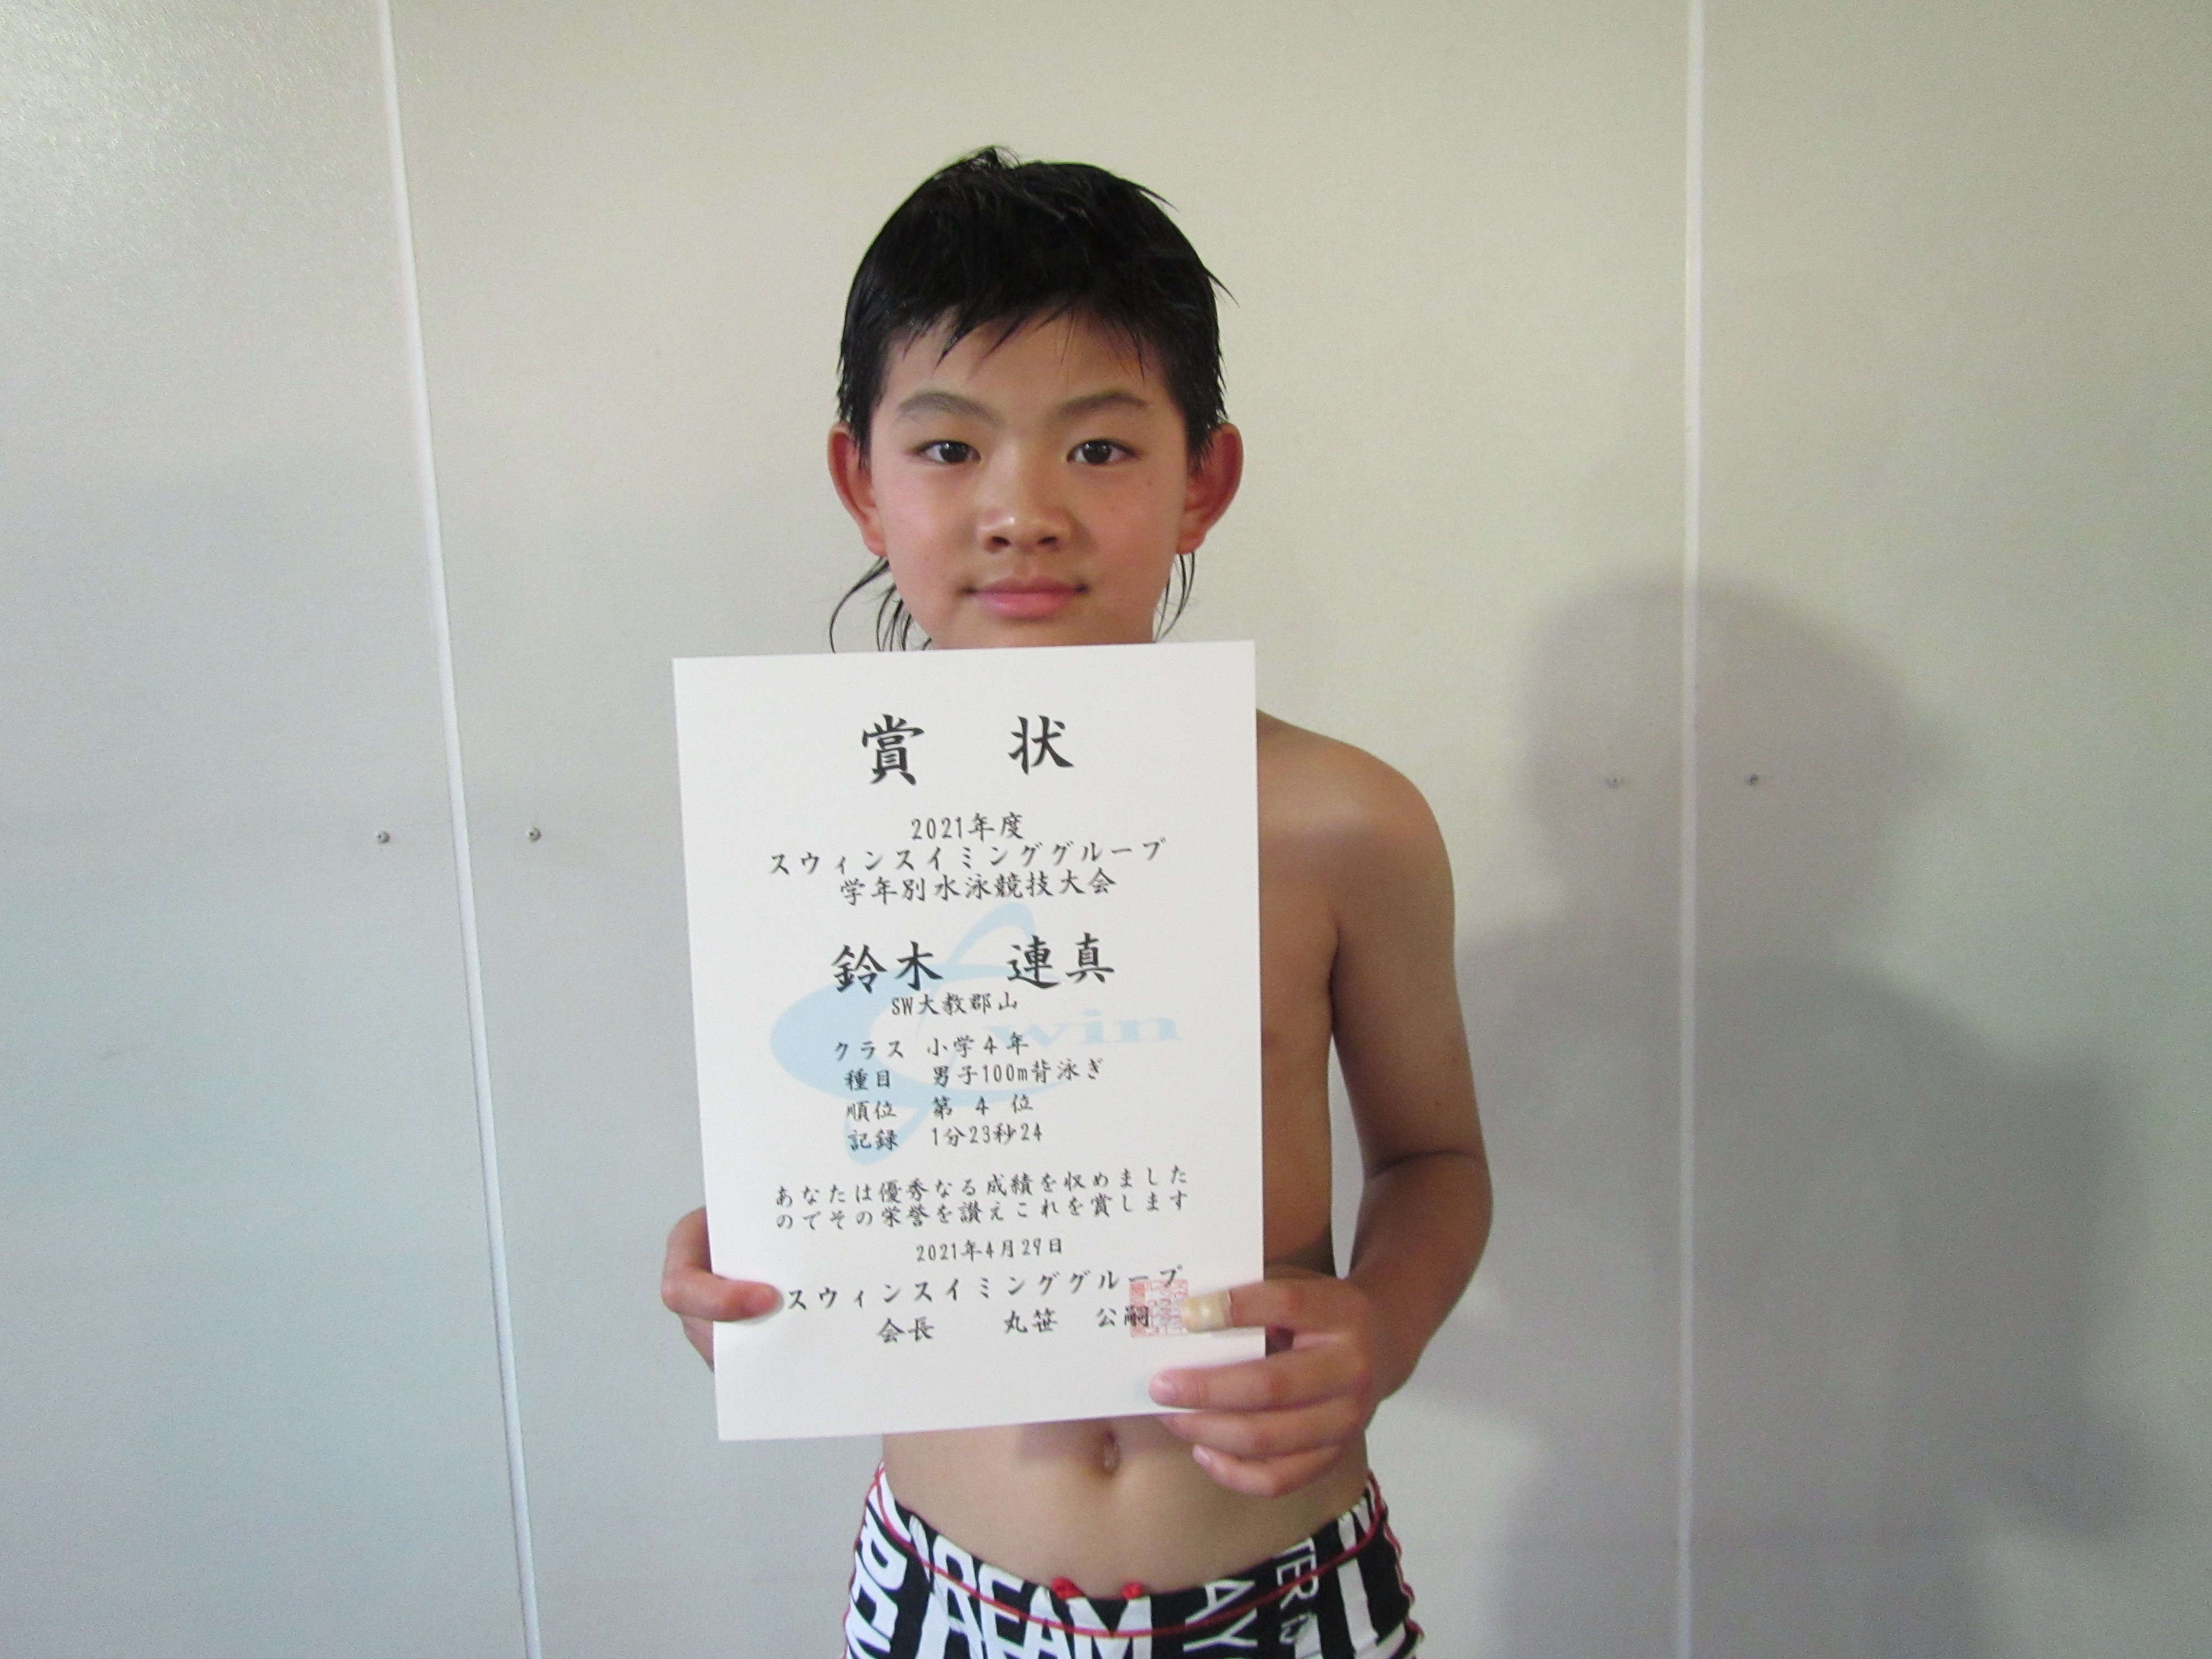 賞 状
2021年度
スウィンスイミンググループ
学年別水泳競技大会
鈴木 連真
SW大教郡山
win
クラス 小学4年
種目 男子100m背泳ぎ
順位 第 4 位
記録 1分23秒24
あなたは優秀なる成績を収めました
のでその栄誉を讃えこれを賞します
2021年4月29日
スウィンスイミンググループ
会長 丸笹 公嗣